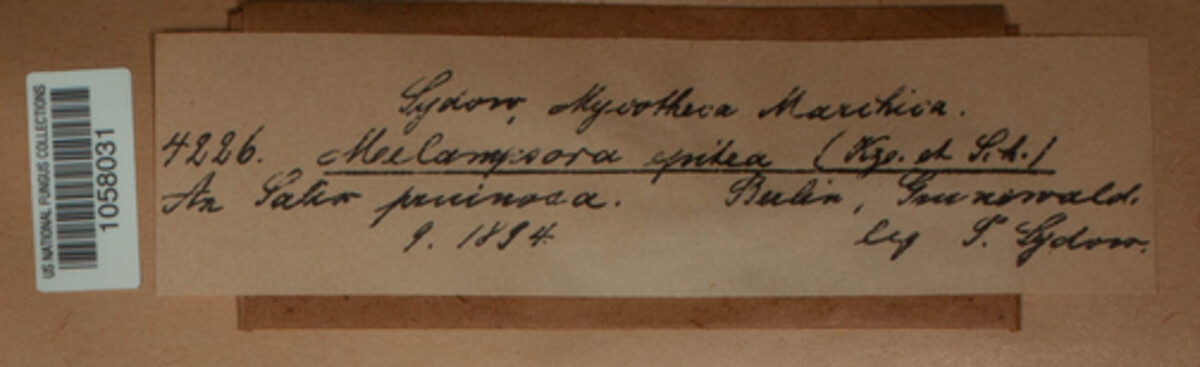 US NATIONAL FUNGUS COLLECTIONS
1058031
Sydow, Mycotheca Marchica.
4226. Melampsora epitea (Kze. et Sch.)
An Salix pruinosa. Berlin, Grunewald.
9. 1894.
leg P. Sydow.